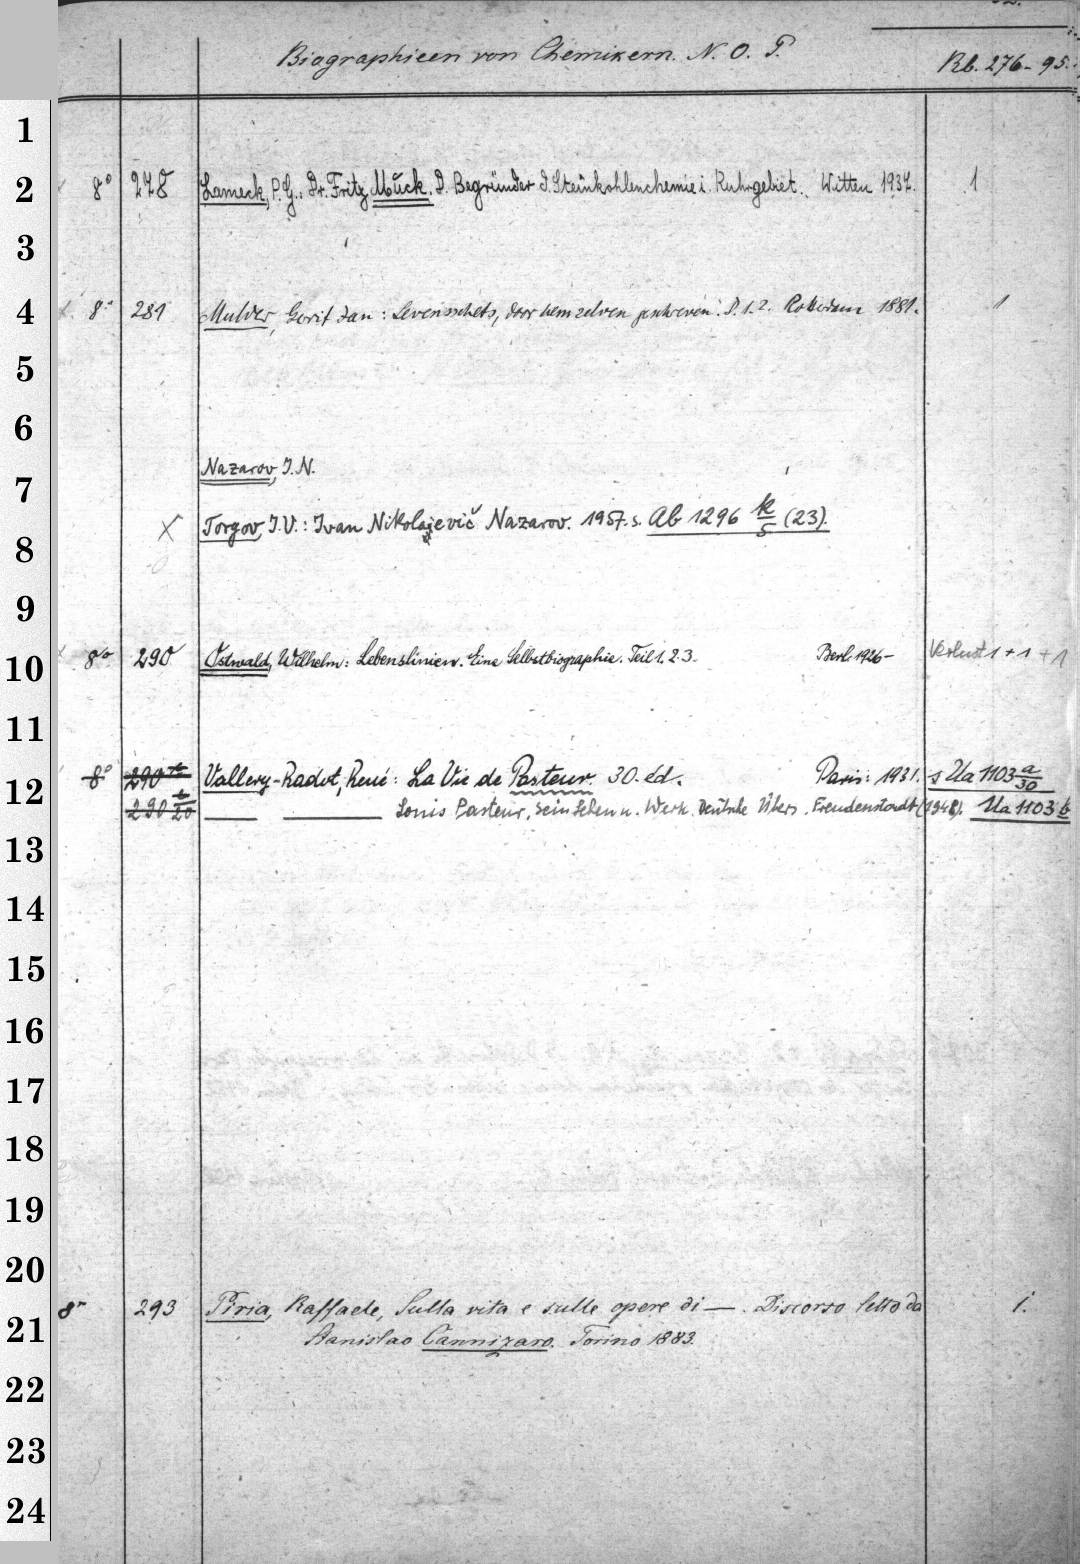 Biographieen von Chemikern. N. O. P.
Rb. 276-95.
1
2 8° 278 Lameck, P. G., Dr. Fritz Muck. D. Begründer d. Steinkohlenchemie i. Ruhrgebiet. Witten 1937. 1
3
4 8° 281 Mulder, Gerit Jan: Levensschets, door hem zelven geschreven. D. 1. 2. Rotterdam 1881. 1
5
6
Nazarov, I. N.
7
X Torgov, I. V.: Ivan Nikolajevič Nazarov. 1957. s. Ab 1296 k/5 (23).
8
9
10 8° 290 Ostwald, Wilhelm: Lebenslinien. Eine Selbstbiographie. Teil 1. 2. 3. Berl. 1926- Verlust 1 + 1 + 1
11
12 8° 290 Vallery-Radot, René: La Vie de Pasteur. 30. éd. Paris: 1931. s Ua 1103 a/30
290 t/20 Louis Pasteur, sein Leben u. Werk. Deutsche Übers. Freudenstadt (1948). Ua 1103 b
13
14
15
16
17
18
19
20
8° 293 Piria, Raffaele, Sulla vita e sulle opere di —. Discorso letto da 1.
21
Stanislao Cannizaro. Torino 1883.
22
23
24